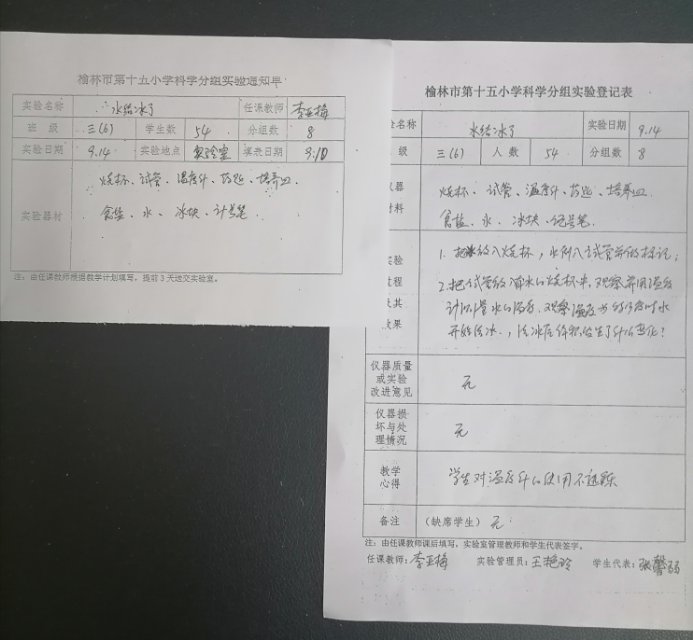 榆林市第十五小学科学分组实验通知单
实验名称 水结冰了 任课教师 李亚梅
班 级 三(6) 学生数 54 分组数 8
实验日期 9.14 实验地点 实验室 填表日期 9.10
烧杯、试管、温度计、药匙、培养皿
实验器材
食盐、水、冰块、记号笔
注：由任课教师根据教学计划填写，提前3天送交实验室。
榆林市第十五小学科学分组实验登记表
名称 水结冰了 实验日期 9.14
级 三(6) 人 数 54 分组数 8
烧杯、试管、温度计、药匙、培养皿
食盐、水、冰块、记号笔
1. 把冰放入烧杯，水倒入试管并做标记；
2. 把试管放入烧杯中，观察并用温度
计测量水的温度，观察温度
开始结冰，结冰后体积发生了什么变化？
仪器质量
或实验
改进意见
无
仪器损
坏与处
理情况
无
教学
心得
学生对温度计的使用不熟练
备注 （缺席学生） 无
注：由任课教师课后填写，实验室管理教师和学生代表签字。
任课教师：李亚梅 实验管理员：王艳玲 学生代表：张馨